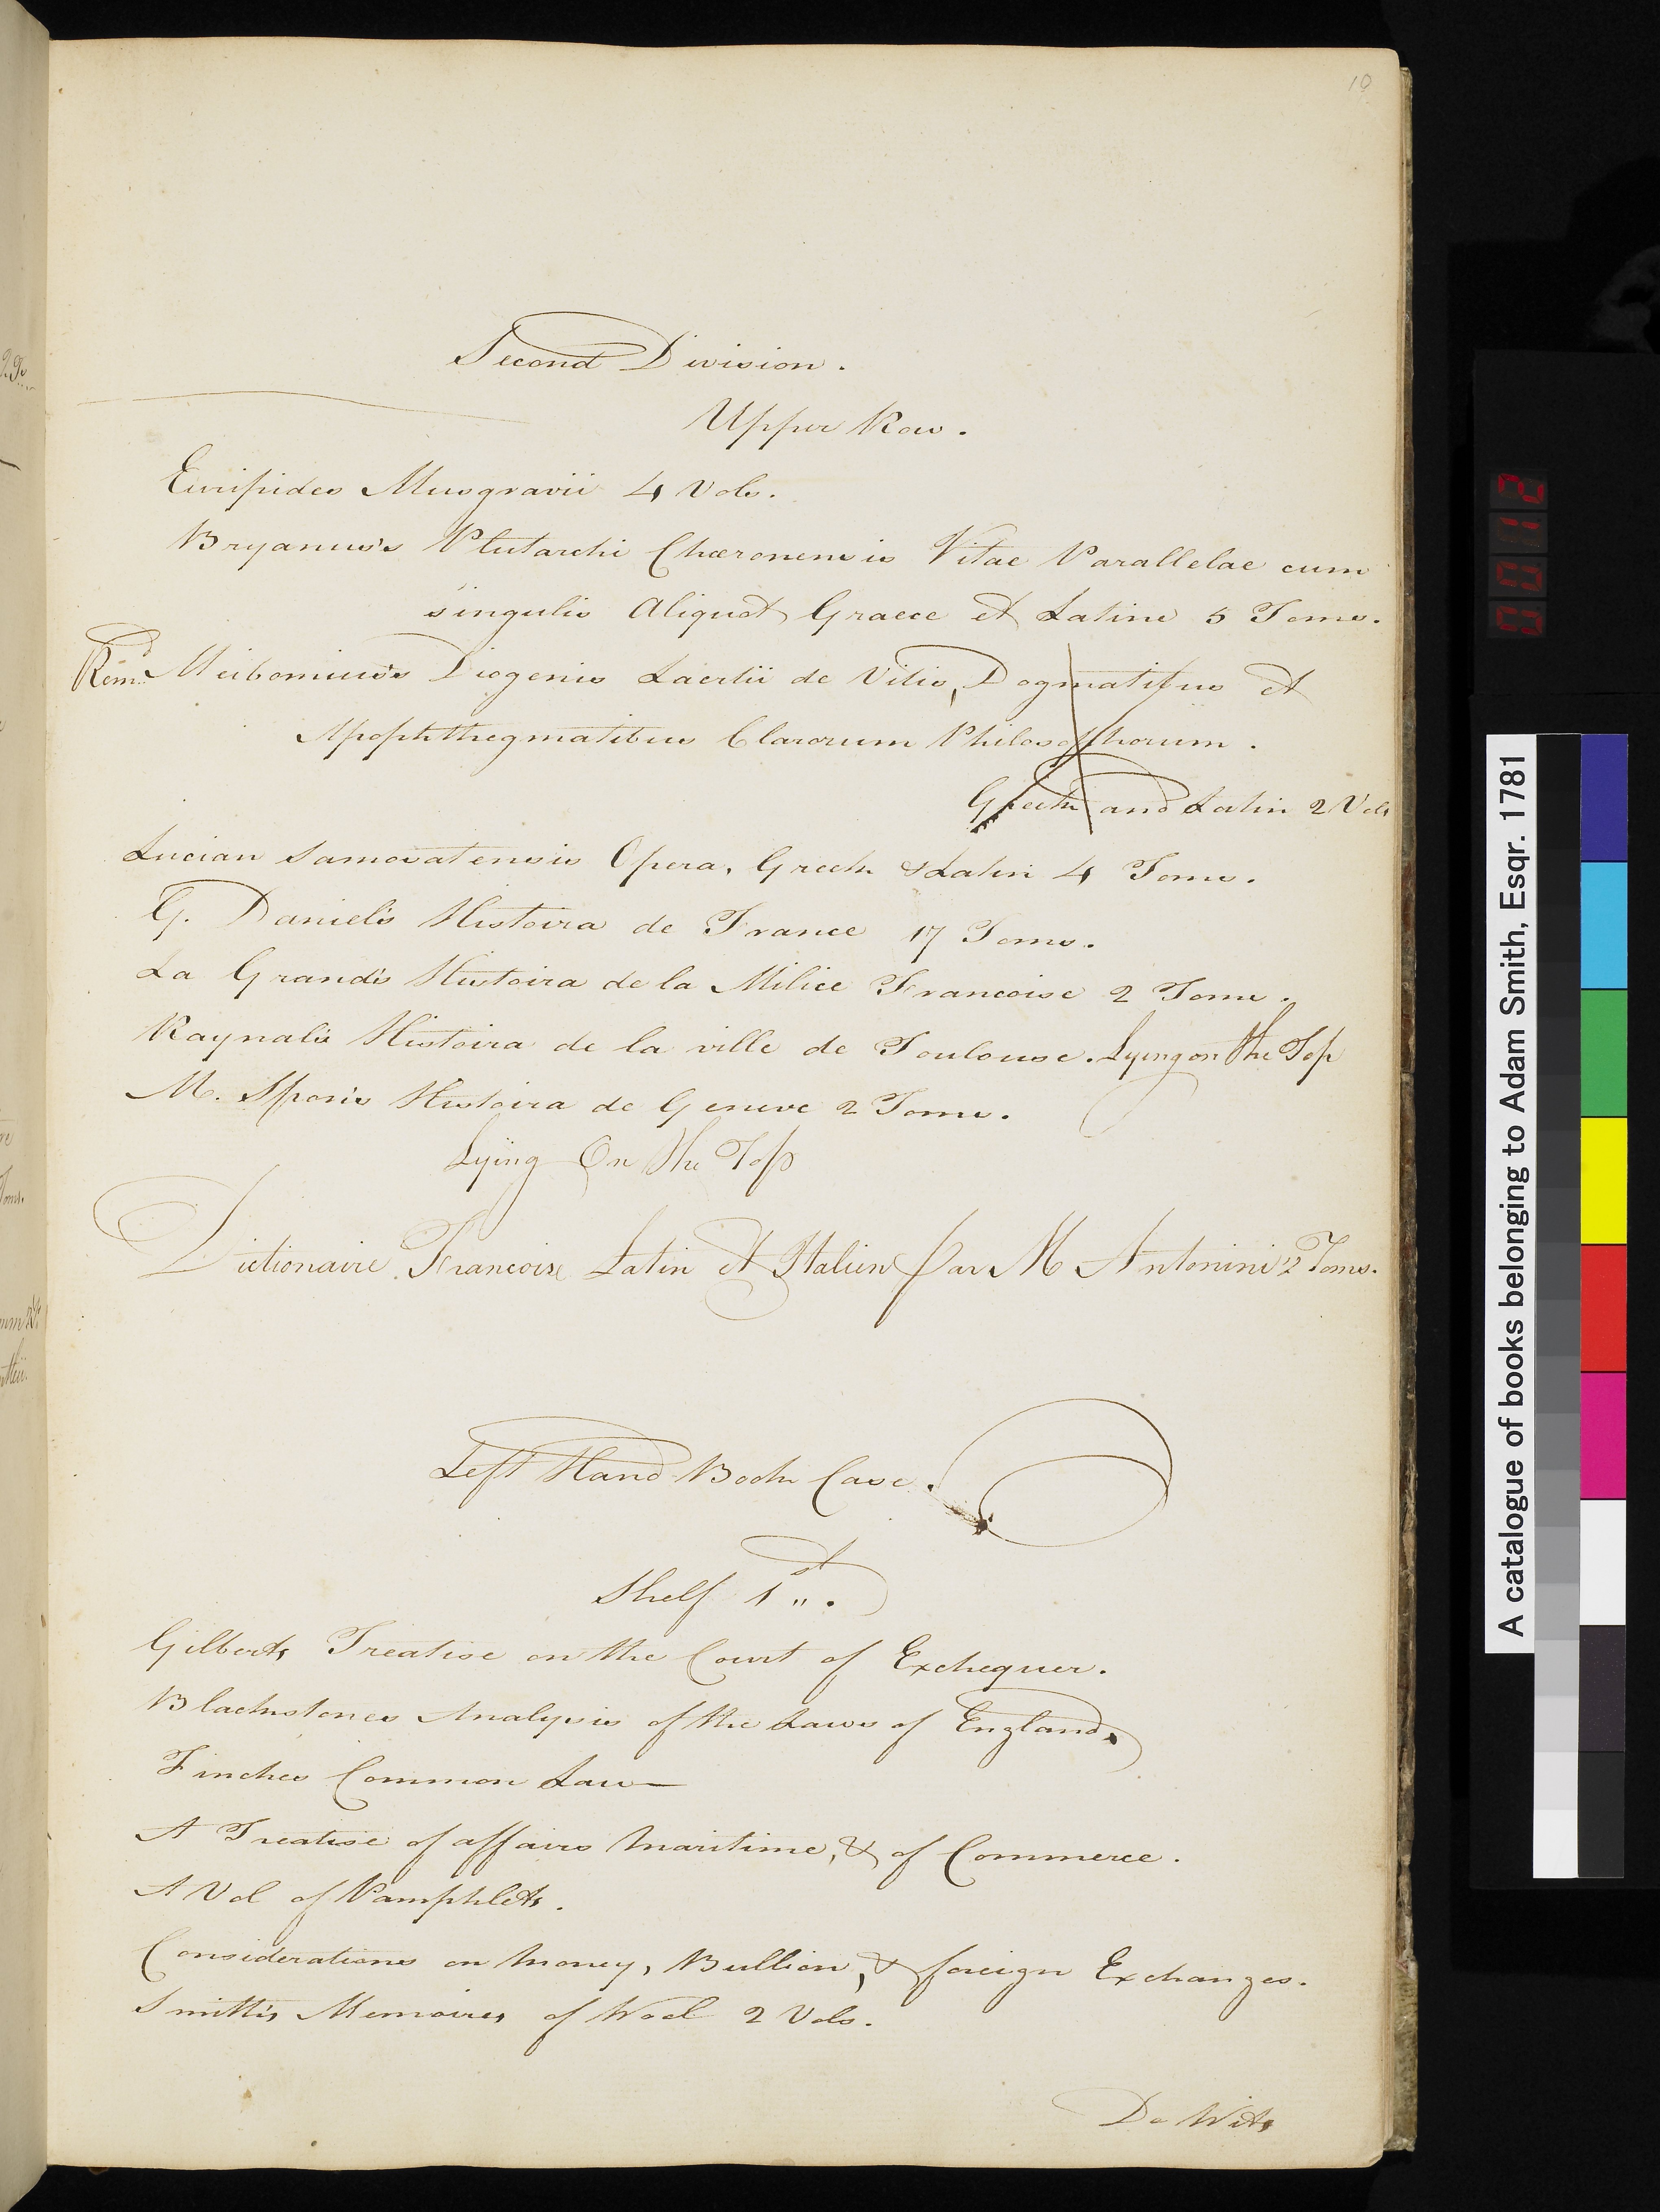 10
Second Division.
Upper Row.
Euripides Musgravii 4 Vols.
Bryanus's Plutarchi Chæronensis Vitae Parallelae cum
singulis Aliquot Graece et Latine 5 Toms.
Remd. Meibomius's Diogenis Laertii de Vitis, Dogmatibus et
Apophthegmatibus Clarorum Philosophorum.
Greek and Latin 2 Vols
Lucian Samosatensis Opera, Greek & Latin 4 Toms.
G. Daniel's Histoira de France 17 Toms.
La Grand's Histoira de la Milice Francoise 2 Tome.
Raynal's Histoira de la ville de Toulouse. Lying on the Top
M. Spon's Histoira de Geneve 2 Tome.
Lying On the Top
Dictionaire Francoise Latin et Italien par M Antonini 2 Toms.
Left Hand Book Case.
Shelf 1st.
Gilberts Treatise on the Court of Exchequer.
Blackstones Analysis of the Laws of England.
Finches Common Law
A Treatise of affairs Maritime, & of Commerce.
A Vol of Pamphlets.
Considerations on Money, Bullion, & foreign Exchanges.
Smith's Memoires of Wool 2 Vols.
De Wits
A catalogue of books belonging to Adam Smith, Esqr. 1781
00112